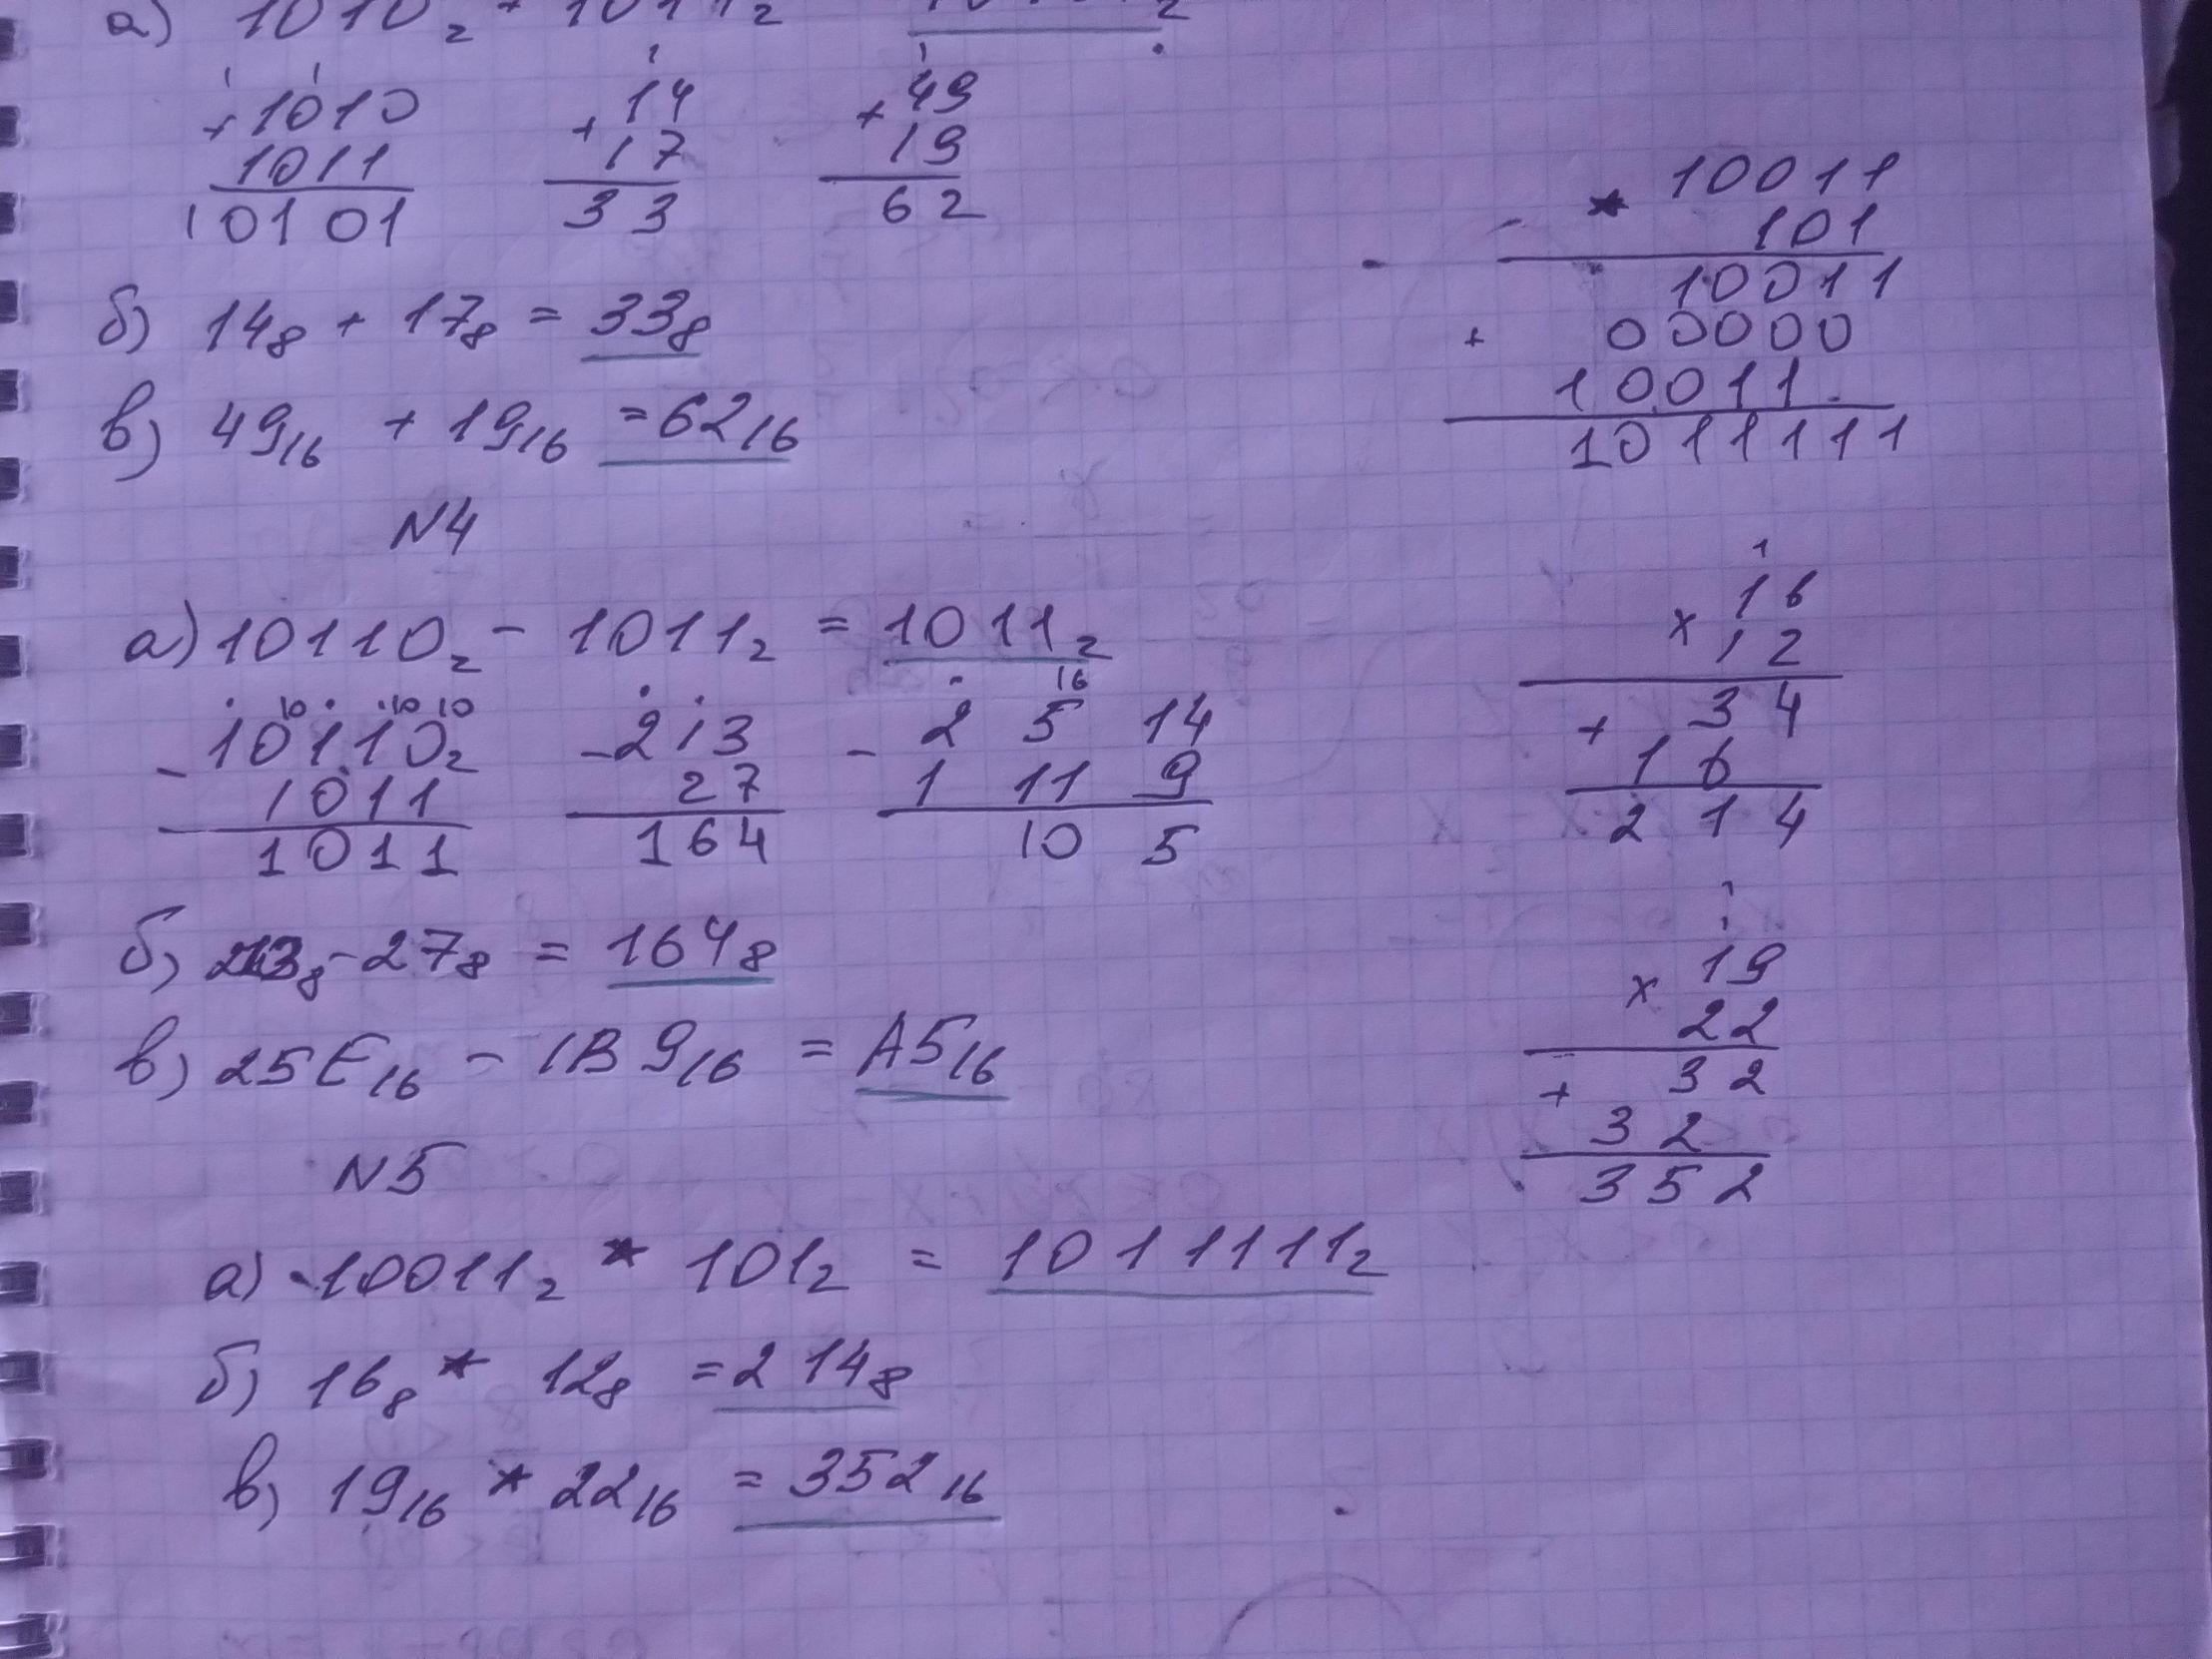 а) 1010₂ + 1011₂
1 1
+ 1010
1011
10101
1
+ 14
17
33
1
+ 49
19
62
б) 14₈ + 17₈ = 33₈
в) 49₁₆ + 19₁₆ = 62₁₆
N4
а) 10110₂ - 1011₂ = 1011₂
10 10 10
- 10110₂
1011
1011
- 213
27
164
16
- 2 5 14
1 11 9
10 5
б) 213₈ - 27₈ = 164₈
в) 25E₁₆ - 1B9₁₆ = A5₁₆
N5
а) 10011₂ * 101₂ = 1011111₂
б) 16₈ * 12₈ = 214₈
в) 19₁₆ * 22₁₆ = 352₁₆
* 10011
101
10011
+ 00000
10011
1011111
1
x 16
12
+ 34
16
214
1
x 19
22
+ 32
32
352